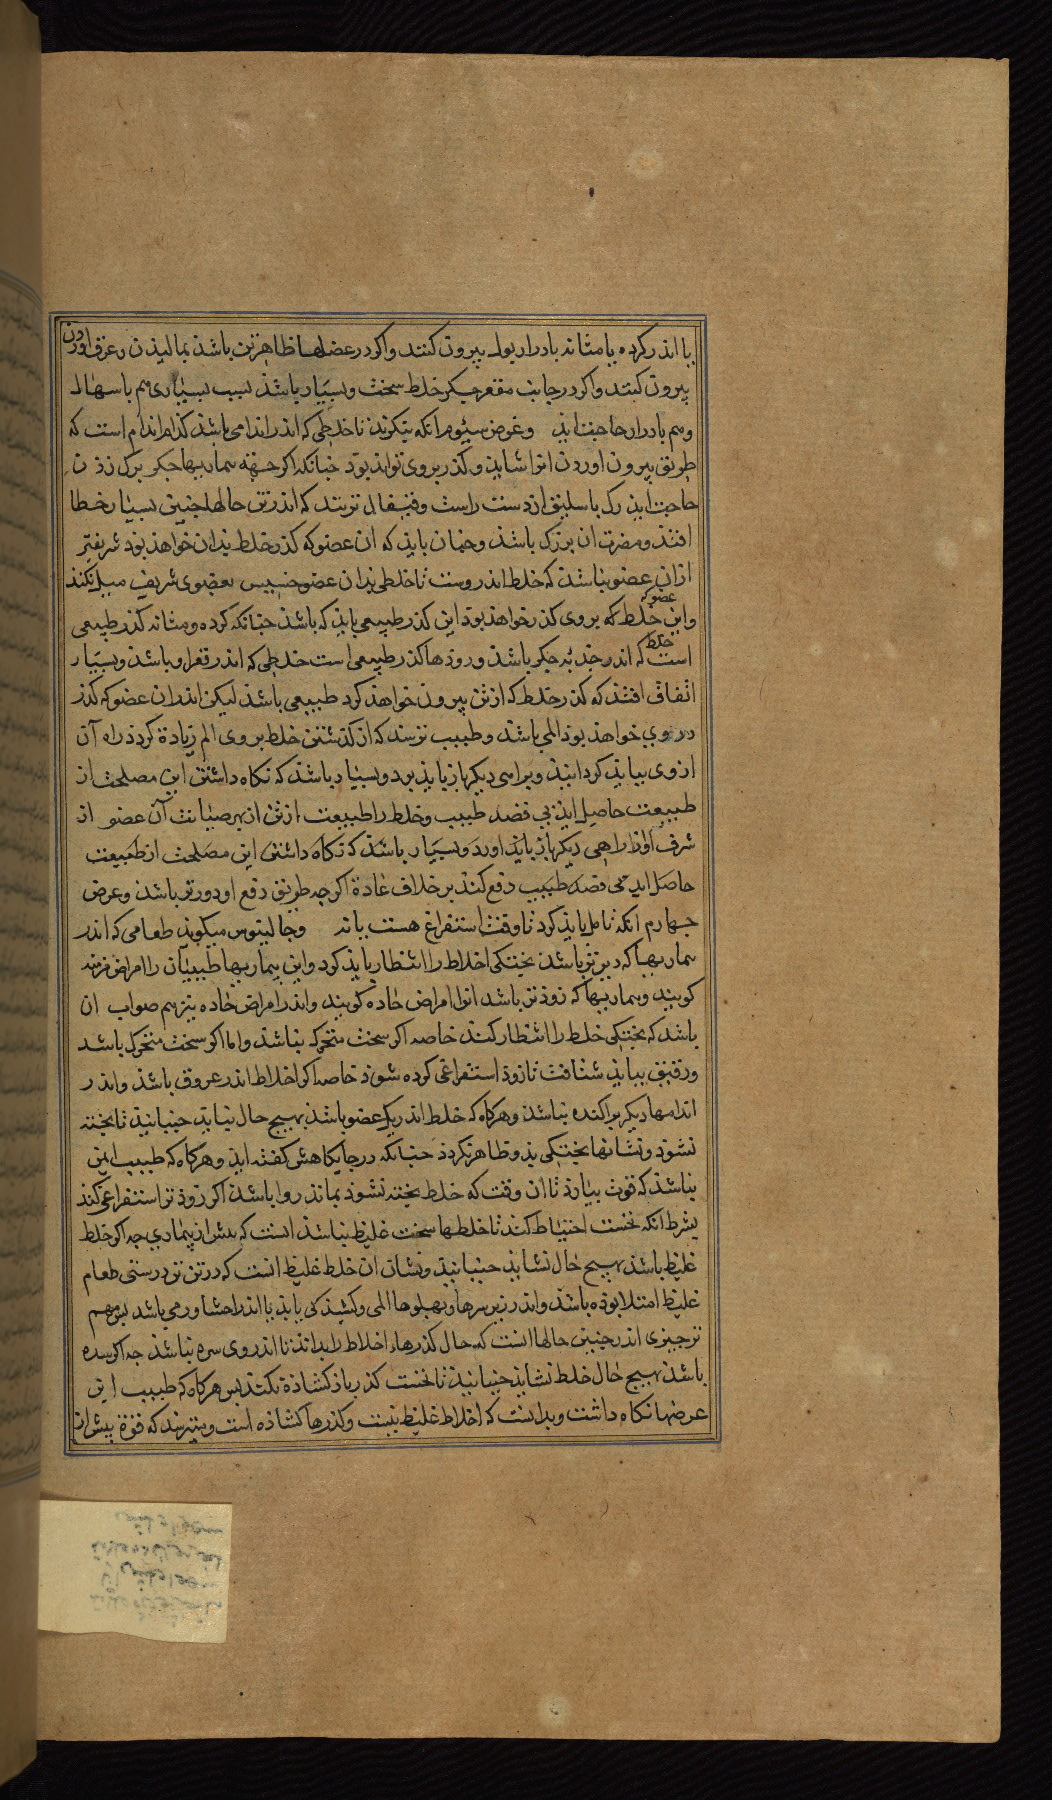 یا اندر کرده یا مثانه بادرار بول بیرون کنند و اکر در عضلها ظاهر تن باشد بمالیذن و عرق اوردن
بیرون کنند و اکر در جانب مقعر جکر خلط سخت و بسیار باشذ بسبب بسیاری هم باسهال
و هم بادرار حاجت ایذ و غرض سیوم انکه بنکرند تا خلطی که اندر اندامی باشذ کذام اندام است که
طریق بیرون اوردن انرا شاید و کذر بروی تواند بوذ جنانکه اکر جهة بیماریها جکر برک زدن
حاجت ایذ رک باسلیق از دست راست و قیفال نزنند که اندرین حالها جنین بسیار خطا
افتذ و مضرت ان بزرک باشذ و جنان باید که ان عضو که کذر خلط بذان خواهذ بوذ شریفتر
ازان عضو نباشذ که خلط اندروست تا خلطی بذان عضو خسیس بعضوی شریف میل نکند
و این خلط که بر وی کذر خواهذ بوذ این کذر طبیعی باید که باشذ جنانکه کرده و مثانه کذر طبیعی
عضو که
است که اندر حدبه جکر باشذ و روذها کذر طبیعی است خلطی که اندر قعر او باشذ و بسیار
خلط
اتفاق افتذ که کذر خلط که از تن بیرون خواهذ کرد طبیعی باشذ لیکن اندران عضو که کذر
بروی خواهذ بوذ المی باشذ و طبیب ترسد که از کذشتن خلط بر وی الم زیادة کردذ راه آن
ازوی بباید کردانید و براهی دیکر باز باید برد و بسیار باشذ که نکاه داشتن این مصلحت از
طبیعت حاصل ایذ بی قصد طبیب و خلط را طبیعت از تن از بهر صیانت آن عضو از
شرف اورا راهی دیکر باز باید اورد و بسیار باشذ که نکاه داشتن این مصلحت از طبیعت
حاصل اید بی قصد طبیب دفع کند بر خلاف عادة اکرجه طریق دفع او دورتر باشذ و غرض
جهارم انکه تامل باید کرد تا وقت استفراغ هست یا نه و جالینوس میکوید طعامی که اندر
بیماریها که دیرتر باشذ بختکی اخلاط را انتظار باید کرد و این بیماریها طبیبان را امراض مزمنه
کویند و بیماریها که زوذتر باشد انرا امراض حاده کویند و اندر امراض حاده نیز هم صواب ان
باشد که بختکی خلط را انتظار کنند خاصه اکر سخت متحرک نباشذ و اما اکر سخت متحرک باشد
ورقیق بباید شتافت تا زوذ استفراغی کرده شوذ خاصه اکر اخلاط اندر عروق باشذ و اندر
اندامها دیکر براکنده نباشذ و هرکاه که خلط اندر یک عضو باشذ بهیج حال نباید جنبانید تا بخته
نشوذ و نشانها بختکی بذو ظاهر نکردذ جنانکه در جایکاهش کفته اید و هرکاه که طبیب ایمن
نباشذ که قوت بیمار تا ان وقت که خلط بخته شوذ بماند روا باشد اکر زوذتر استفراغی کند
بشرط انکه نخست احتیاط کند تا خلطها سخت غلیظ نباشذ انست که بیش از بیماری جه اکر خلط
غلیظ باشذ بهیج حال نشاید جنبانید و نشان ان خلط غلیظ انست که در تن تندرستی طعام
غلیظ امتلا بوذه باشذ و اندر زیر سرها و بهلوها المی و کشیذکی یابد یا اندر احشا ورمی باشد بس مهم
تر جیزی اندر جنین حالها انست که حال کذرهاء اخلاط را بدانند تا اندر وی سده نباشذ جه اکر سده
باشذ بهیج حال خلط نشاید جنبانید تا نخست کذر باز کشاذه نکند بس هرکاه که طبیب این
عرضها نکاه داشت و بدانست که اخلاط غلیظ نیست و کذرها کشاذه است و میترسد که قوة بیش از